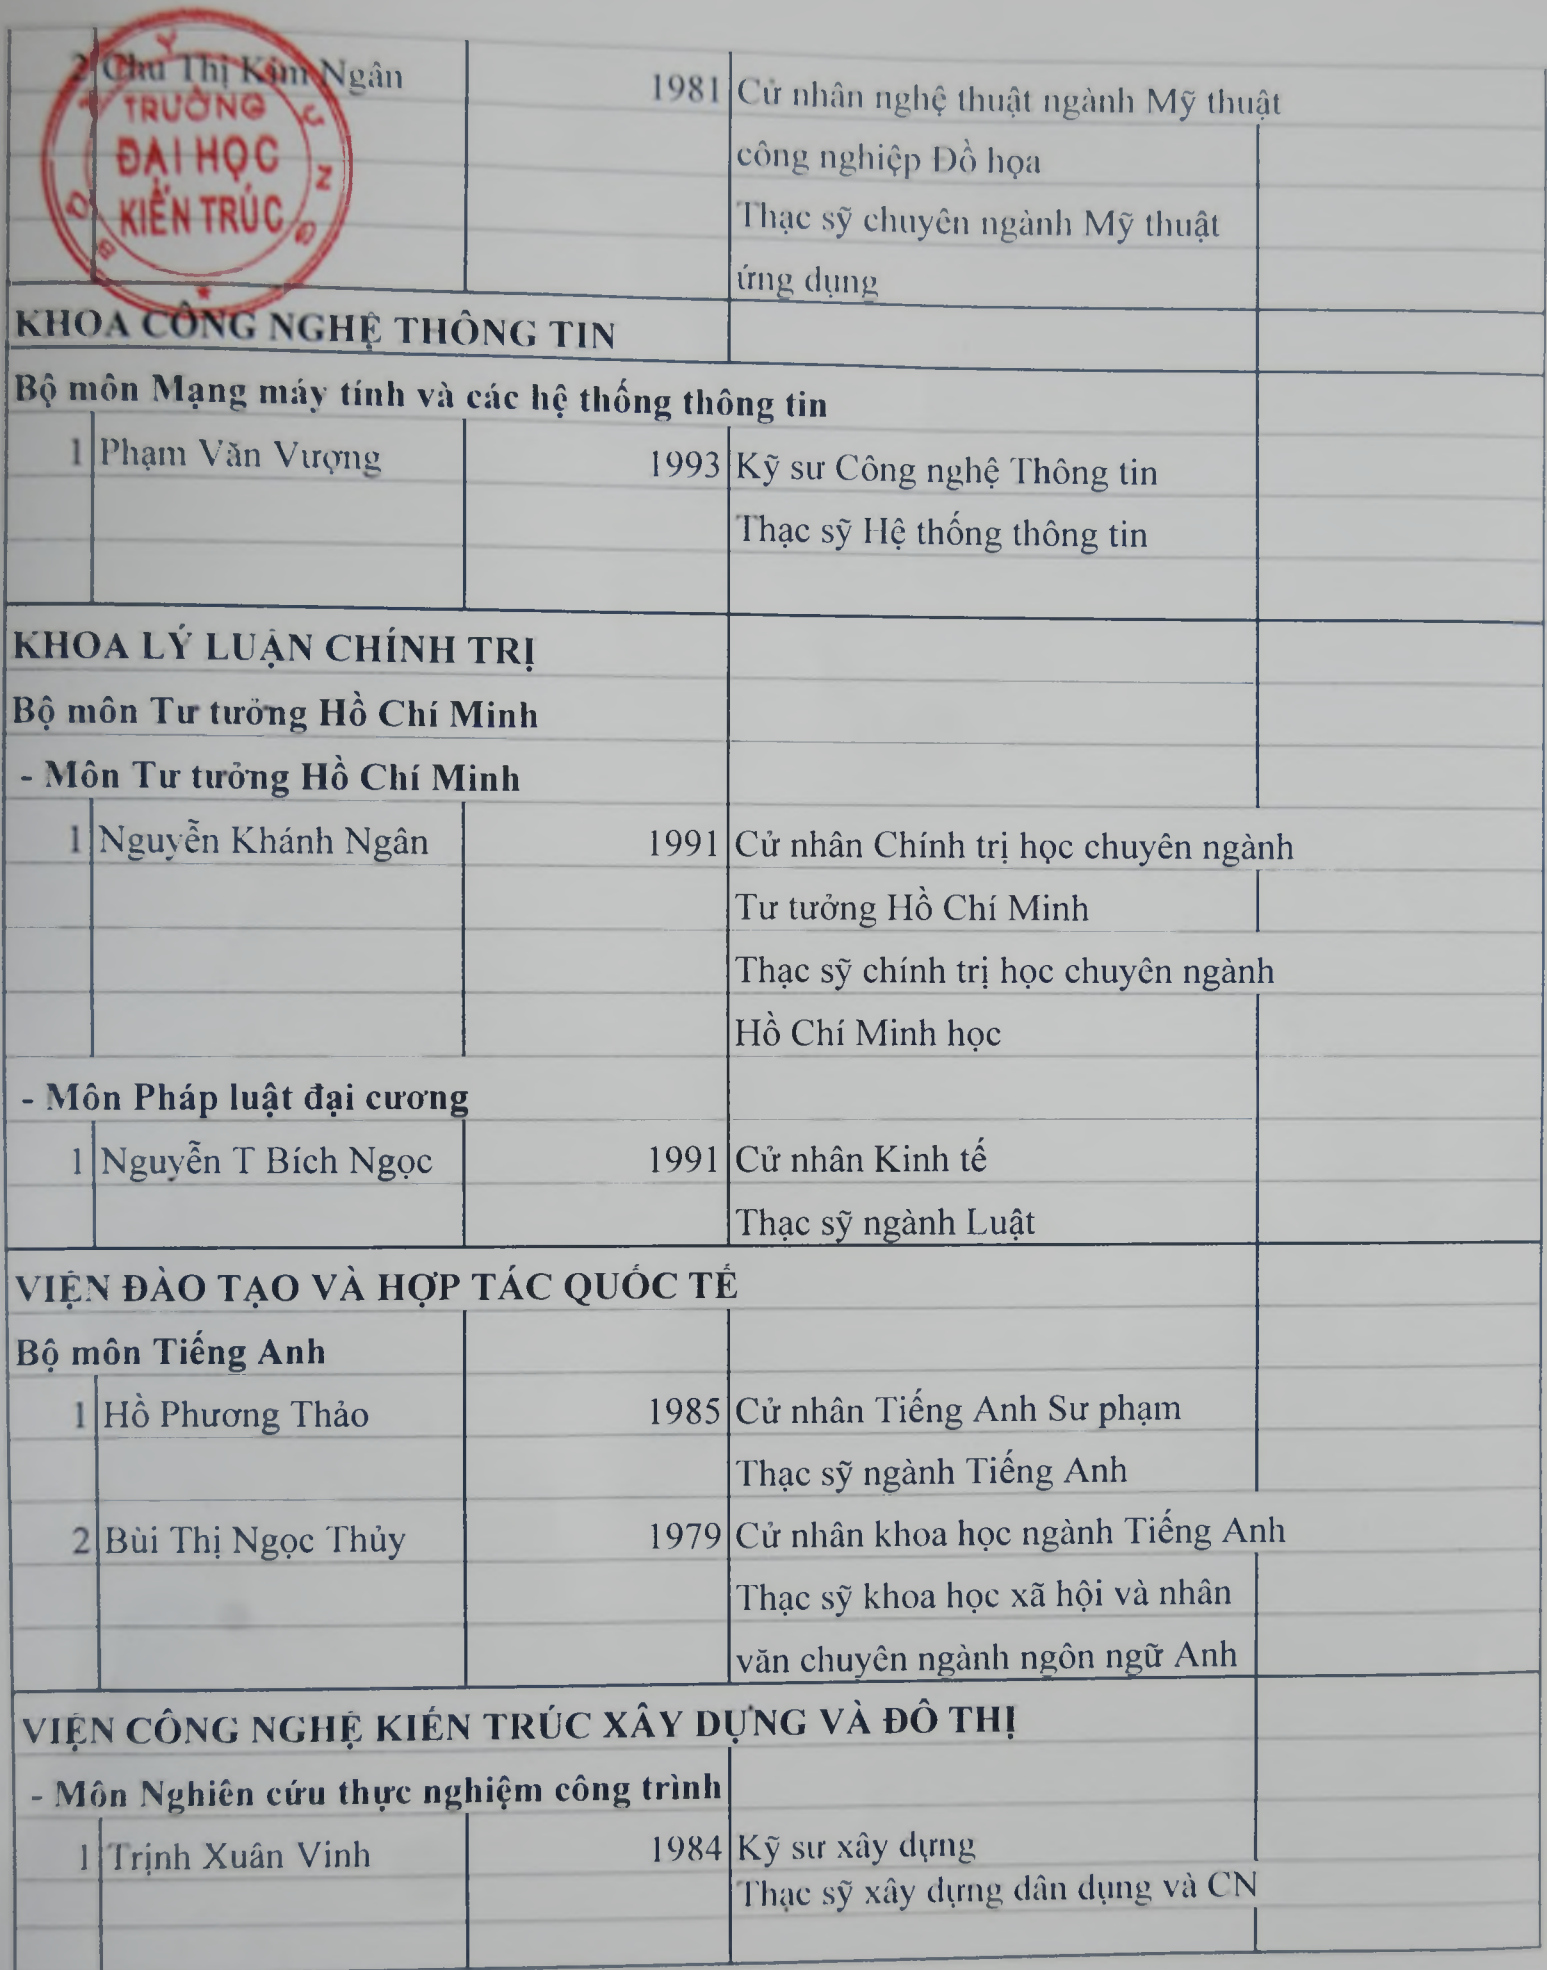 2 Chu Thị Kim Ngân 1981 Cử nhân nghệ thuật ngành Mỹ thuật
công nghiệp Đồ họa
Thạc sỹ chuyên ngành Mỹ thuật
ứng dụng
TRƯỜNG
ĐẠI HỌC
KIẾN TRÚC
KHOA CÔNG NGHỆ THÔNG TIN
Bộ môn Mạng máy tính và các hệ thống thông tin
1 Phạm Văn Vượng 1993 Kỹ sư Công nghệ Thông tin
Thạc sỹ Hệ thống thông tin
KHOA LÝ LUẬN CHÍNH TRỊ
Bộ môn Tư tưởng Hồ Chí Minh
- Môn Tư tưởng Hồ Chí Minh
1 Nguyễn Khánh Ngân 1991 Cử nhân Chính trị học chuyên ngành
Tư tưởng Hồ Chí Minh
Thạc sỹ chính trị học chuyên ngành
Hồ Chí Minh học
- Môn Pháp luật đại cương
1 Nguyễn T Bích Ngọc 1991 Cử nhân Kinh tế
Thạc sỹ ngành Luật
VIỆN ĐÀO TẠO VÀ HỢP TÁC QUỐC TẾ
Bộ môn Tiếng Anh
1 Hồ Phương Thảo 1985 Cử nhân Tiếng Anh Sư phạm
Thạc sỹ ngành Tiếng Anh
2 Bùi Thị Ngọc Thủy 1979 Cử nhân khoa học ngành Tiếng Anh
Thạc sỹ khoa học xã hội và nhân
văn chuyên ngành ngôn ngữ Anh
VIỆN CÔNG NGHỆ KIẾN TRÚC XÂY DỰNG VÀ ĐÔ THỊ
- Môn Nghiên cứu thực nghiệm công trình
1 Trịnh Xuân Vinh 1984 Kỹ sư xây dựng
Thạc sỹ xây dựng dân dụng và CN